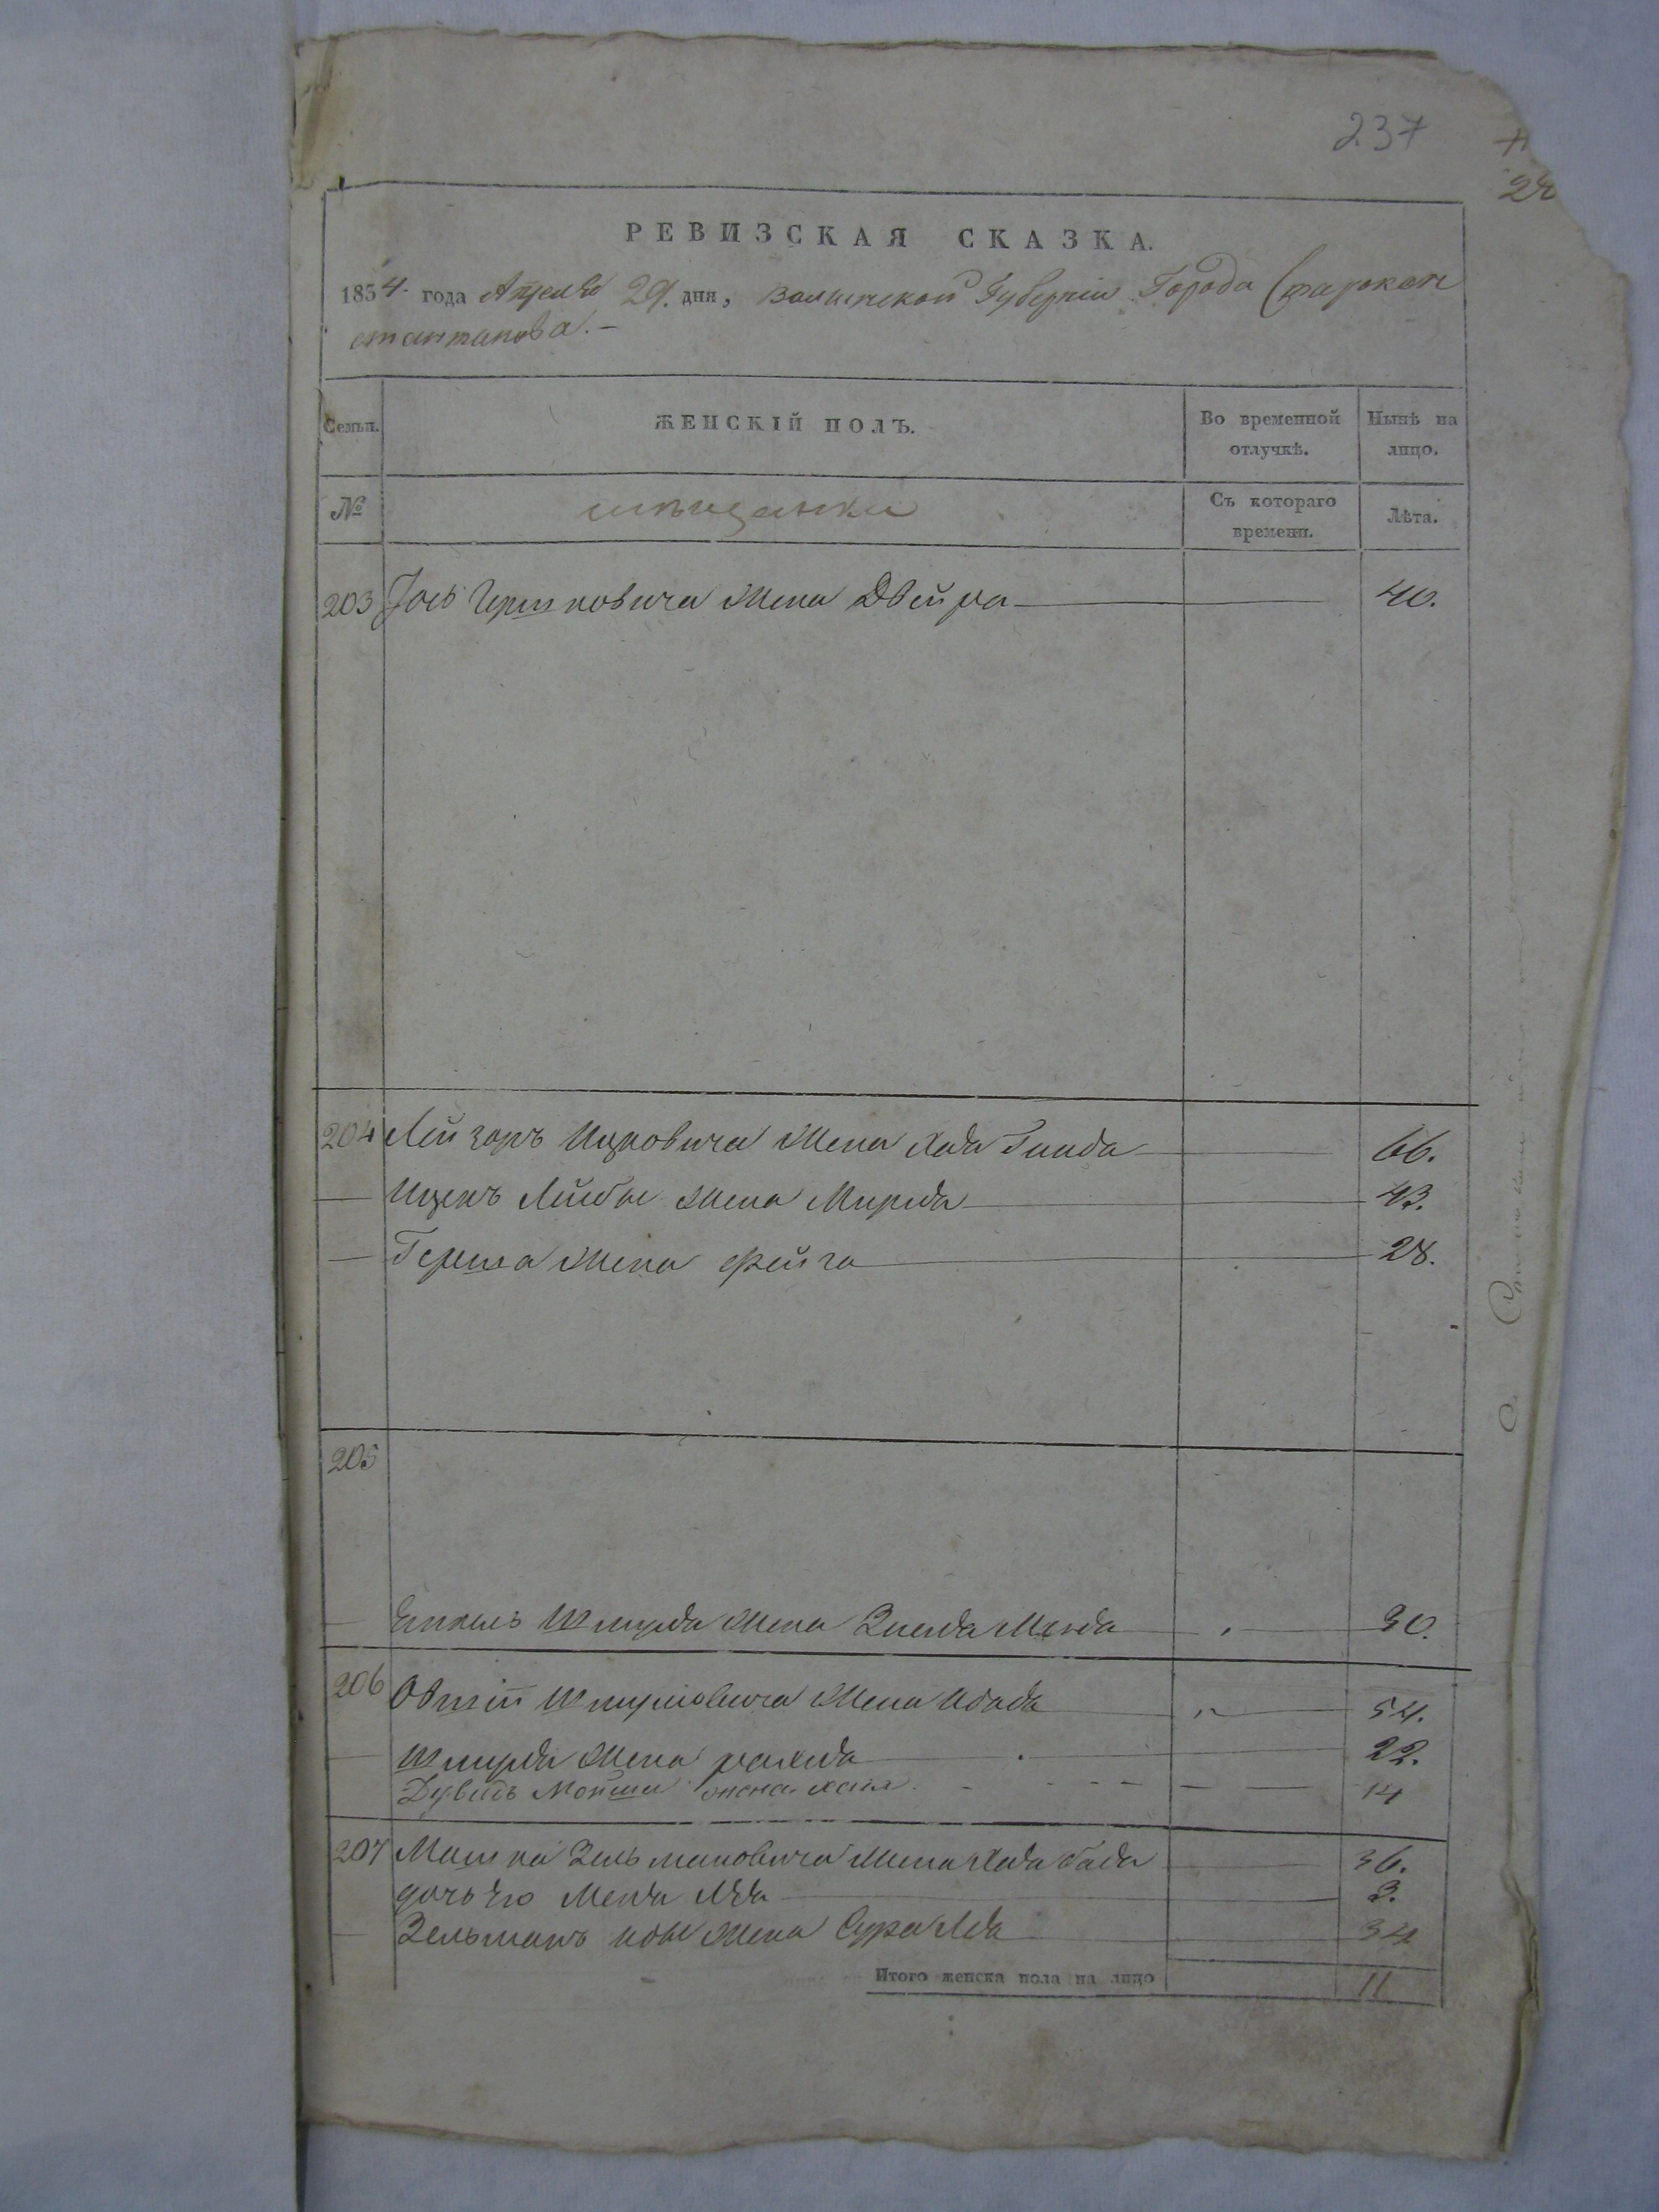 237
РЕВИЗСКАЯ СКАЗКА.
1854 года Апреля 29. дня, Волынской Губернии Города Старокон
стантинова.-
Семьи. ЖЕНСКІЙ ПОЛЪ. Во временной отлучкѣ. Нынѣ на лицо.
№ мещанки Съ котораго времени. Лѣта.
203 Іось Гершковича Жена Двейра 40.
204 Лейзоръ Ицковича Жена Хая Гинда 66.
— Ицекъ Лейбы Жена Мирля 43.
— Герша Жена Фейга 28.
205
— Шмуля Жена 30.
206 Овшій Шмулиовича Жена 54.
— Шмуля Жена рахля 22.
Дувидъ Мойши жена хая. 14
207 Машка Зельмановича Жена Хая 36.
дочь Его Леа 3.
— Зельманъ Жена Сура Леа 34
Итого женска пола на лицо 11